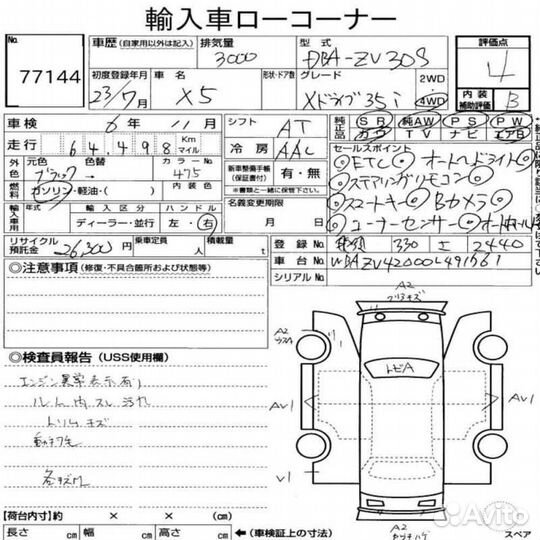 輸入車ローコーナー
No.
77144
車歴 (自家用以外は記入)
排気量
3000
型式
DBA-ZV30S
評価点
4
初度登録年月
23/7月
車名
X5
形状・ドア数
グレード
Xドライブ35i
2WD
4WD
内装
補助評価
B
車検 6年 11月
シフト
AT
純正品
SR 純AW PS PW
カワ TV ナビ エアB
走行 64,498 Km マイル
冷房
AAC
セールスポイント
ETC オートHライト
ステアリングリモコン
スマートキー Bカメラ
コーナーセンサー
外色
元色
ブラック
色替
カラーNo.
475
新車整備手帳
(保証書付)
有・無
※書類と一緒に保管して下さい。
燃料 ガソリン・軽油・( )
内装色
名義変更期限
月 日
輸入車用
年式
輸入区分
ディーラー・並行
ハンドル
左・右
リサイクル
預託金
26,300円
乗車定員
人
積載量
t
登録No.
330
2440
車台No.
WBAZV42000L491561
シリアルNo.
◎注意事項 (修復・不具合箇所および状態等)
A2
A2
トビA
AV1
AV1
V1
A2
◎検査員報告 (USS使用欄)
エンジン異常表示有り
ルーム内スレ汚れ
トリムキズ
【荷台内寸】約 × × (cm)
長さ cm 幅 cm 高さ cm
(車検証上の寸法)
スペア
Avito